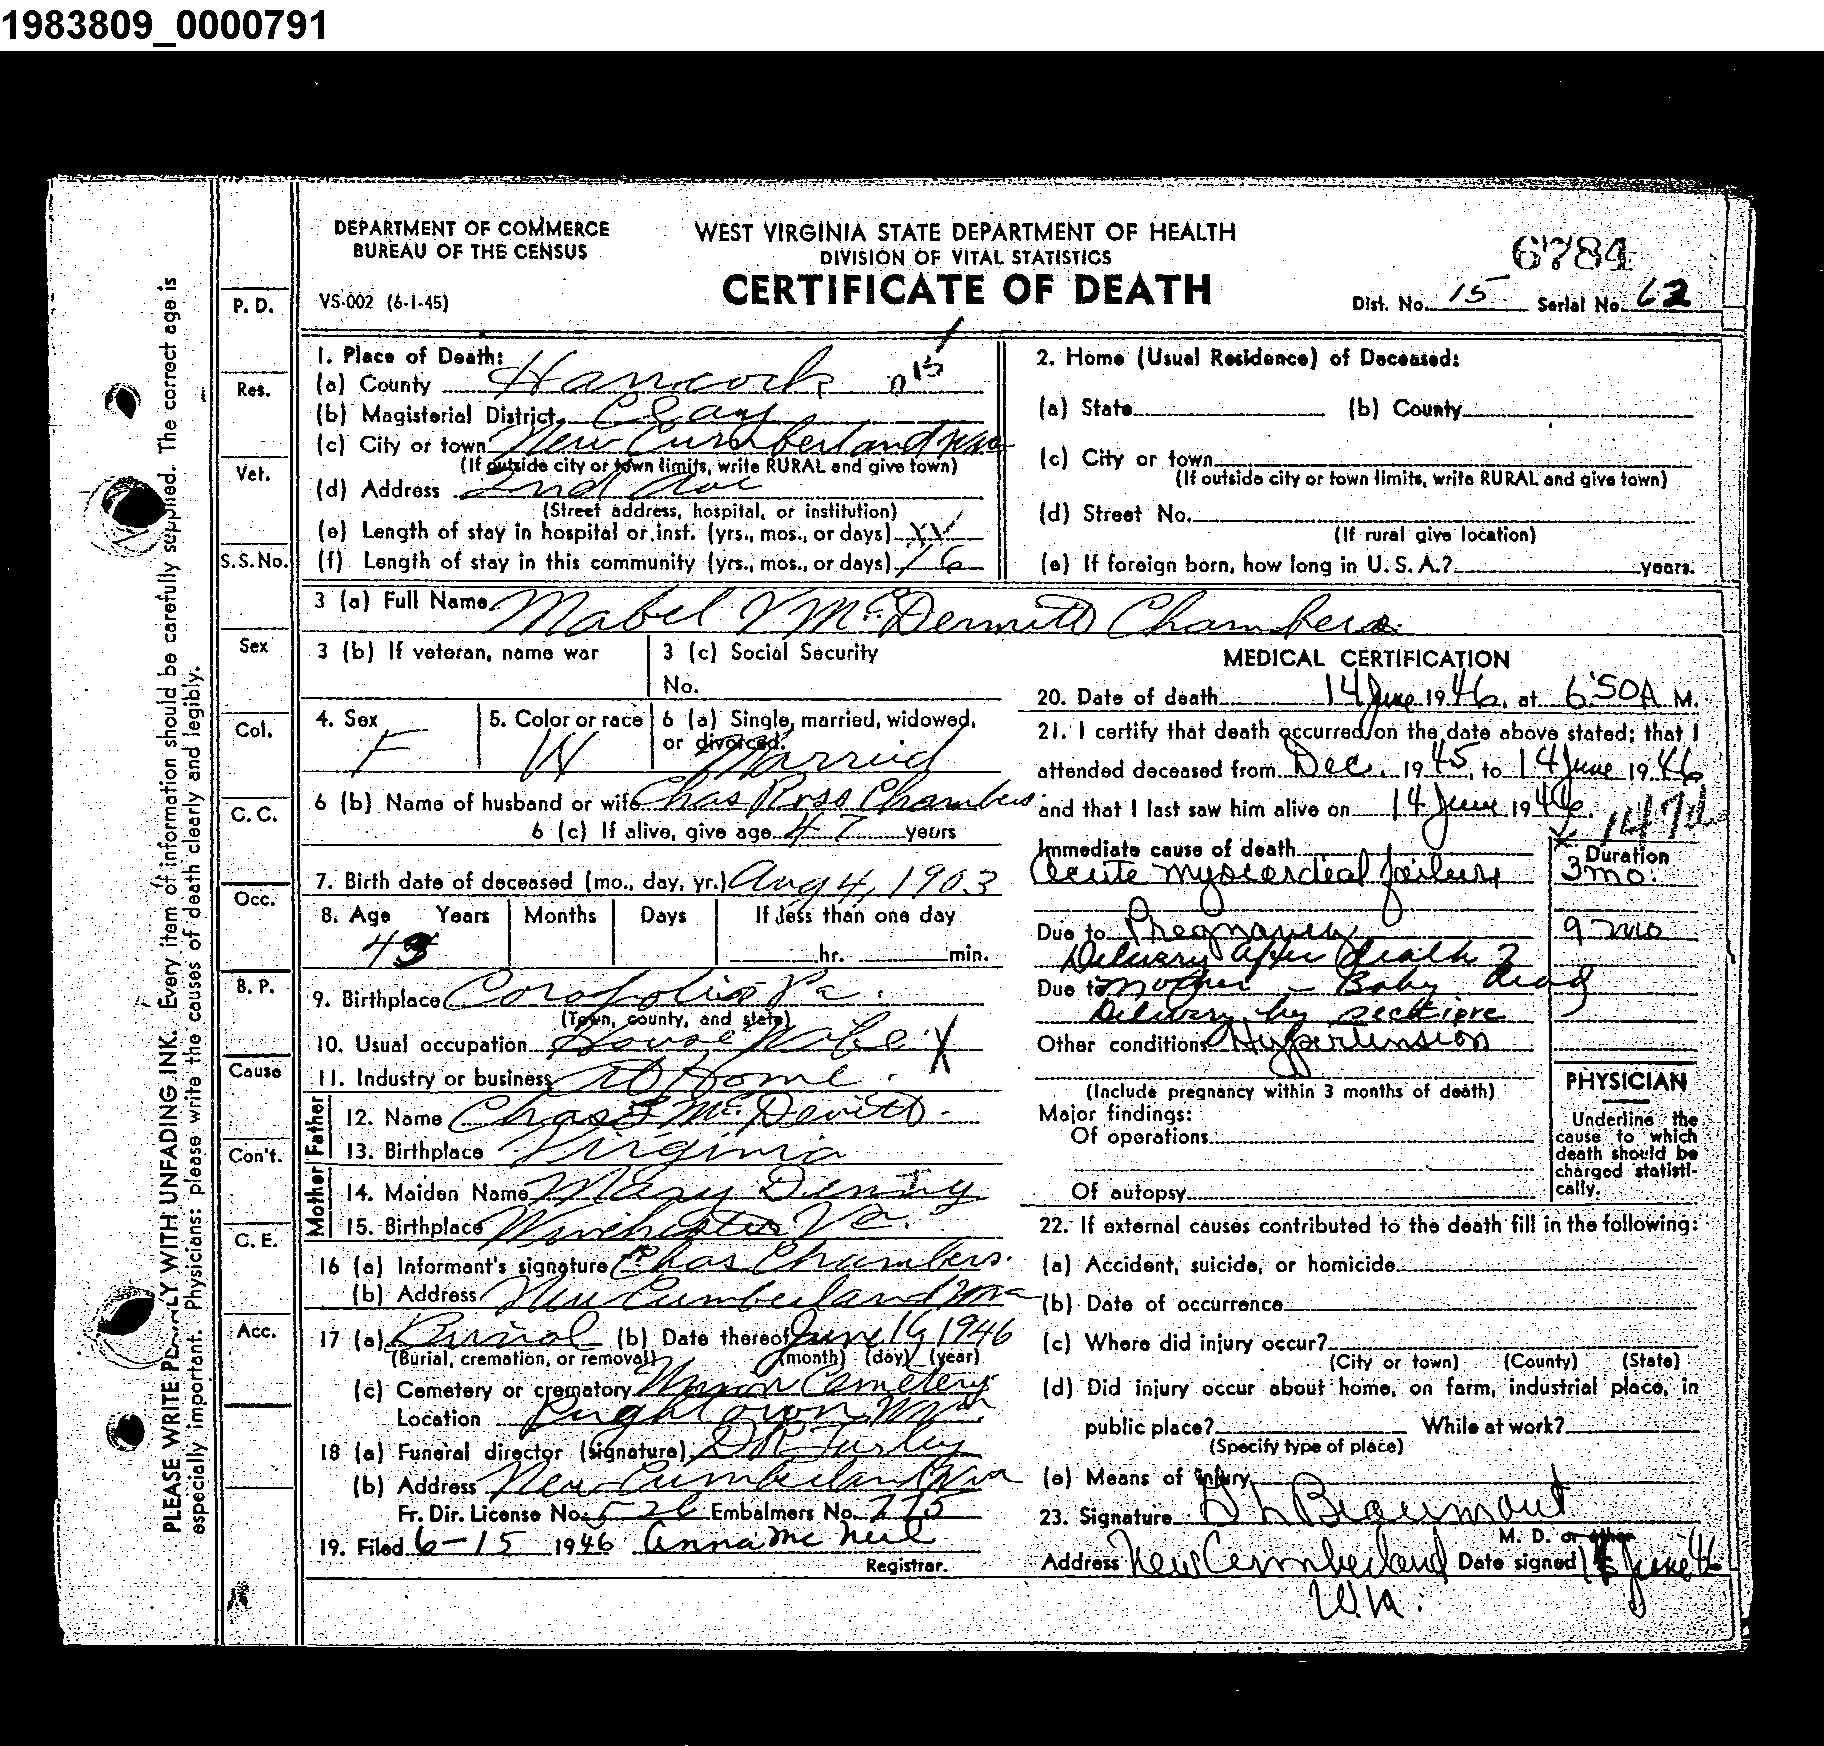 1983809_0000791
DEPARTMENT OF COMMERCE
BUREAU OF THE CENSUS
WEST VIRGINIA STATE DEPARTMENT OF HEALTH
DIVISION OF VITAL STATISTICS
CERTIFICATE OF DEATH
6784
VS-002 (6-1-45)
Dist. No. 15 Serial No. 62
PLEASE WRITE PLAINLY WITH UNFADING INK. Every item of information should be carefully supplied. The correct age is
especially important. Physicians: please write the causes of death clearly and legibly.
P. D.
Res.
Vet.
S.S.No.
Sex
Col.
C. C.
Occ.
B. P.
Cause
Con't.
C. E.
Acc.
1. Place of Death:
(a) County Hancock
(b) Magisterial District Clay
(c) City or town New Cumberland W Va
(If outside city or town limits, write RURAL and give town)
(d) Address 2nd Ave
(Street address, hospital, or institution)
(e) Length of stay in hospital or inst. (yrs., mos., or days) XX
(f) Length of stay in this community (yrs., mos., or days) 16
2. Home (Usual Residence) of Deceased:
(a) State (b) County
(c) City or town
(If outside city or town limits, write RURAL and give town)
(d) Street No.
(If rural give location)
(e) If foreign born, how long in U. S. A.? years.
3 (a) Full Name Mabel V McDermitt Chambers
3 (b) If veteran, name war
3 (c) Social Security
No.
4. Sex F
5. Color or race W
6 (a) Single, married, widowed,
or divorced. Married
6 (b) Name of husband or wife Chas Ross Chambers
6 (c) If alive, give age 47 years
7. Birth date of deceased (mo., day, yr.) Aug 4, 1903
8. Age Years Months Days If less than one day
43 hr. min.
9. Birthplace Corapolis Pa.
(Town, county, and state)
10. Usual occupation House Wife X
11. Industry or business At Home.
Father
12. Name Chas F McDevitt
13. Birthplace Virginia
Mother
14. Maiden Name Mary Denny
15. Birthplace Winchester Va.
16 (a) Informant's signature Chas Chambers.
(b) Address New Cumberland W Va
17 (a) Burial (b) Date thereof June 16 1946
(Burial, cremation, or removal) (month) (day) (year)
(c) Cemetery or crematory Union Cemetery
Location Pughtown W Va
18 (a) Funeral director (signature) D R Turley
(b) Address New Cumberland W Va
Fr. Dir. License No. 526 Embalmers No. 775
19. Filed 6-15 1946 Anna Mc Neil
Registrar.
MEDICAL CERTIFICATION
20. Date of death 14 June 1946, at 6:50 A M.
21. I certify that death occurred on the date above stated; that I
attended deceased from Dec. 1945, to 14 June 1946
and that I last saw him alive on 14 June 1946.
Immediate cause of death
Duration
Acute myocardial failure 3 mo.
Due to Pregnancy 9 mo
Delivery after death 2
Due to mother - Baby dead
Delivery by section
Other conditions Hypertension
(Include pregnancy within 3 months of death)
Major findings:
Of operations
Of autopsy
PHYSICIAN
Underline the
cause to which
death should be
charged statisti-
cally.
22. If external causes contributed to the death fill in the following:
(a) Accident, suicide, or homicide
(b) Date of occurrence
(c) Where did injury occur?
(City or town) (County) (State)
(d) Did injury occur about home, on farm, industrial place, in
public place? While at work?
(Specify type of place)
(e) Means of injury
23. Signature Beaumont
M. D. or other
Address New Cumberland Date signed June 46
W. Va.